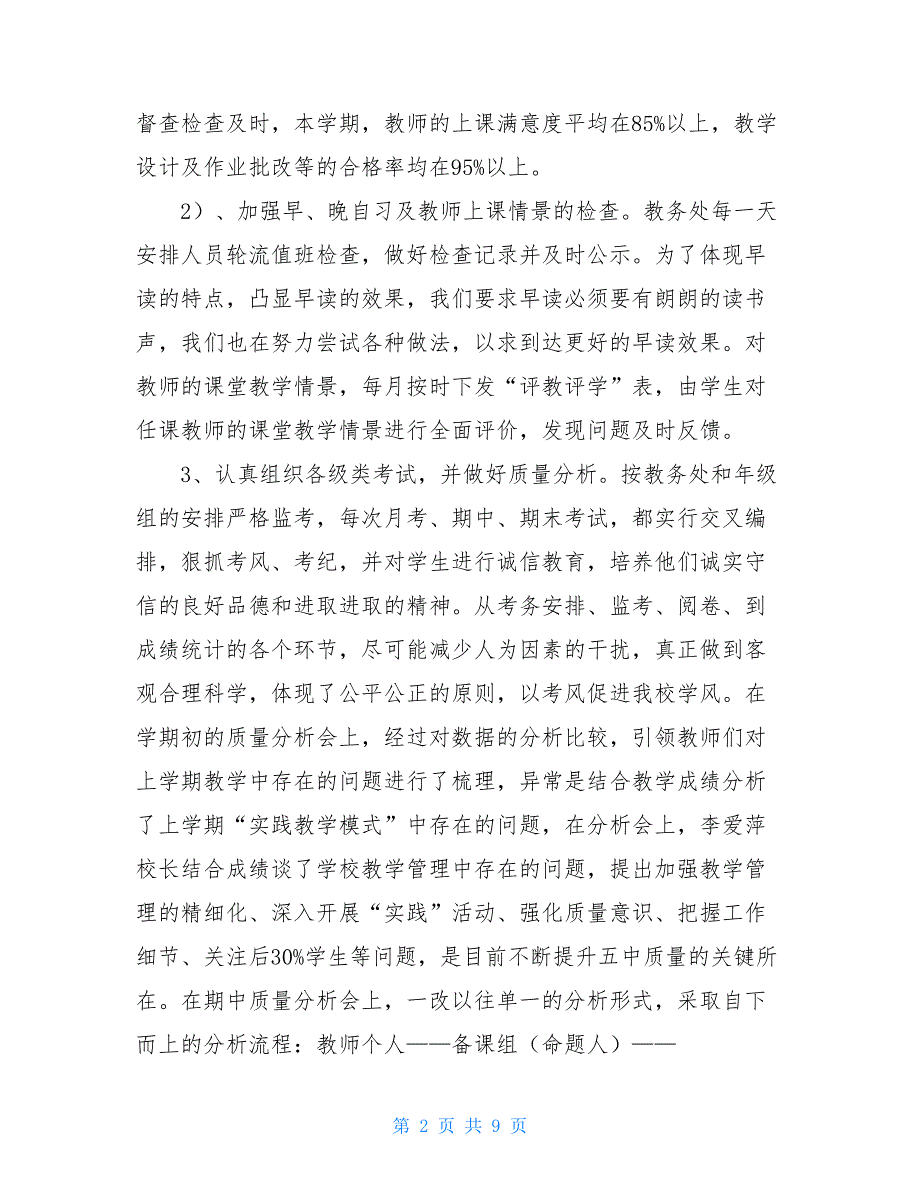 督查检查及时，本学期，教师的上课满意度平均在85%以上，教学
设计及作业批改等的合格率均在95%以上。
2）、加强早、晚自习及教师上课情景的检查。教务处每一天
安排人员轮流值班检查，做好检查记录并及时公示。为了体现早
读的特点，凸显早读的效果，我们要求早读必须要有朗朗的读书
声，我们也在努力尝试各种做法，以求到达更好的早读效果。对
教师的课堂教学情景，每月按时下发“评教评学”表，由学生对
任课教师的课堂教学情景进行全面评价，发现问题及时反馈。
3、认真组织各级类考试，并做好质量分析。按教务处和年级
组的安排严格监考，每次月考、期中、期末考试，都实行交叉编
排，狠抓考风、考纪，并对学生进行诚信教育，培养他们诚实守
信的良好品德和进取进取的精神。从考务安排、监考、阅卷、到
成绩统计的各个环节，尽可能减少人为因素的干扰，真正做到客
观合理科学，体现了公平公正的原则，以考风促进我校学风。在
学期初的质量分析会上，经过对数据的分析比较，引领教师们对
上学期教学中存在的问题进行了梳理，异常是结合教学成绩分析
了上学期“实践教学模式”中存在的问题，在分析会上，李爱萍
校长结合成绩谈了学校教学管理中存在的问题，提出加强教学管
理的精细化、深入开展“实践”活动、强化质量意识、把握工作
细节、关注后30%学生等问题，是目前不断提升五中质量的关键所
在。在期中质量分析会上，一改以往单一的分析形式，采取自下
而上的分析流程：教师个人——备课组（命题人）——
第 2 页 共 9 页